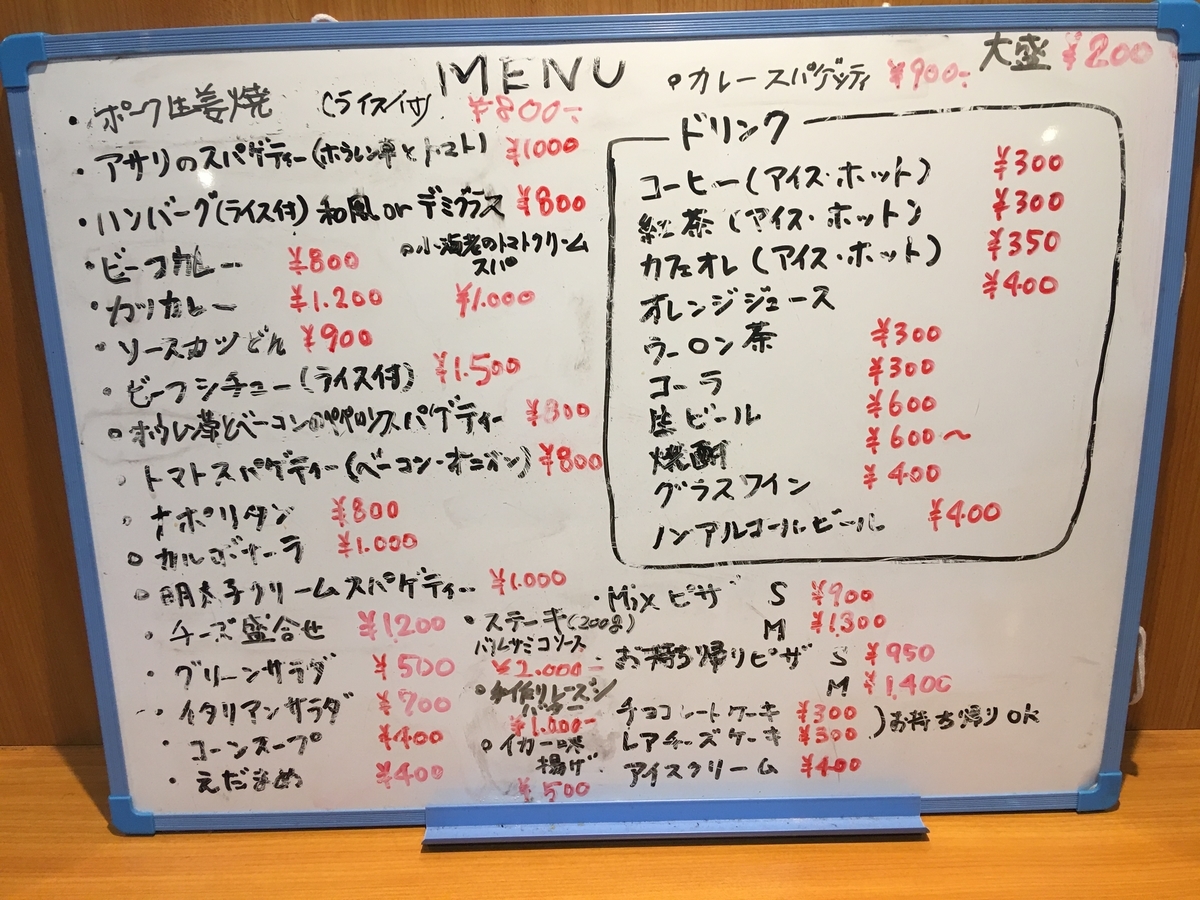 MENU
大盛 ¥200
・ポーク生姜焼 (ライス付) ¥800-
・アサリのスパゲティー(ホウレン草とトマト) ¥1000
・ハンバーグ(ライス付) 和風 or デミグラス ¥800
・ビーフカレー ¥800
・カツカレー ¥1.200
・ソースカツどん ¥900
・ビーフシチュー(ライス付) ¥1.500
○ホウレン草とベーコンのペペロンスパゲティー ¥800
・トマトスパゲティー(ベーコン・オニオン) ¥800
○ナポリタン ¥800
○カルボナーラ ¥1.000
○明太子クリームスパゲティー ¥1.000
・チーズ盛合せ ¥1200
・グリーンサラダ ¥500
・イタリアンサラダ ¥700
・コーンスープ ¥400
・えだまめ ¥400
○小海老のトマトクリーム
スパ
¥1.000
・ステーキ(200g)
バルサミコソース
¥2.000-
○手作りレーズン
バター
¥1.000-
○イカ一味
揚げ
¥500
○カレースパゲッティ ¥900-
ドリンク
コーヒー(アイス・ホット) ¥300
紅茶(アイス・ホット) ¥300
カフェオレ(アイス・ホット) ¥350
オレンジジュース ¥400
ウーロン茶 ¥300
コーラ ¥300
生ビール ¥600
焼酎 ¥600〜
グラスワイン ¥400
ノンアルコールビール ¥400
・Mixピザ S ¥900
M ¥1.300
お持ち帰りピザ S ¥950
M ¥1,400
チョコレートケーキ ¥300
レアチーズケーキ ¥300 )お持ち帰りOK
アイスクリーム ¥400